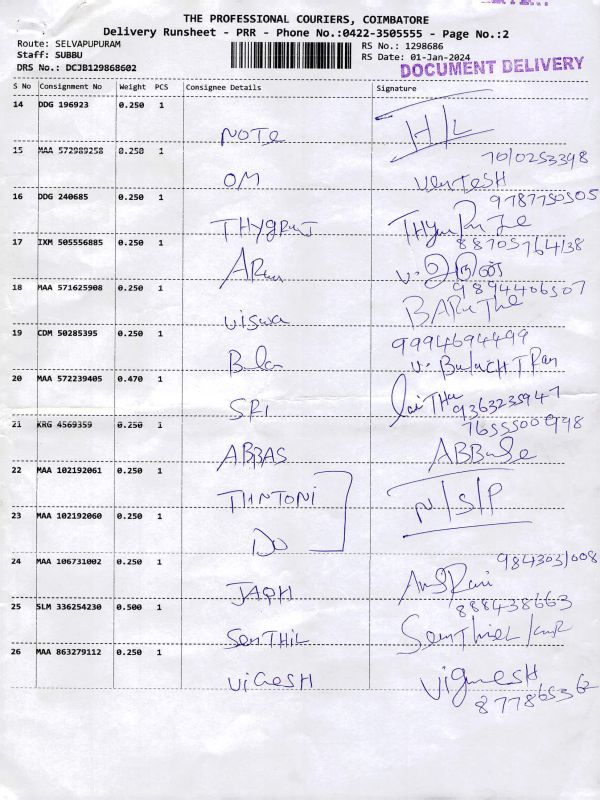 THE PROFESSIONAL COURIERS, COIMBATORE
Delivery Runsheet - PRR - Phone No.:0422-3505555 - Page No.:2
Route: SELVAPUPURAM
RS No.: 1298686
Staff: SUBBU
RS Date: 01-Jan-2024
DRS No.: DCJB129868602
DOCUMENT DELIVERY
S No Consignment No Weight PCS Consignee Details Signature
14 DDG 196923 0.250 1
NOTE H/L
15 MAA 572989258 0.250 1
OM
16 DDG 240685 0.250 1 9787750505
17 IXM 505556885 0.250 1
ARun
18 MAA 571625908 0.250 1 9894406507
Viswa
19 CDM 50285395 0.250 1 9994694499
Bala
20 MAA 572239405 0.470 1
SRI 9363235947
21 KRG 4569359 0.250 1
ABBAS
22 MAA 102192061 0.250 1
N/S/P
23 MAA 102192060 0.250 1
Do
24 MAA 106731002 0.250 1
25 SLM 336254230 0.500 1 888438663
SenTHIL
26 MAA 863279112 0.250 1
ViGESH Vignesh